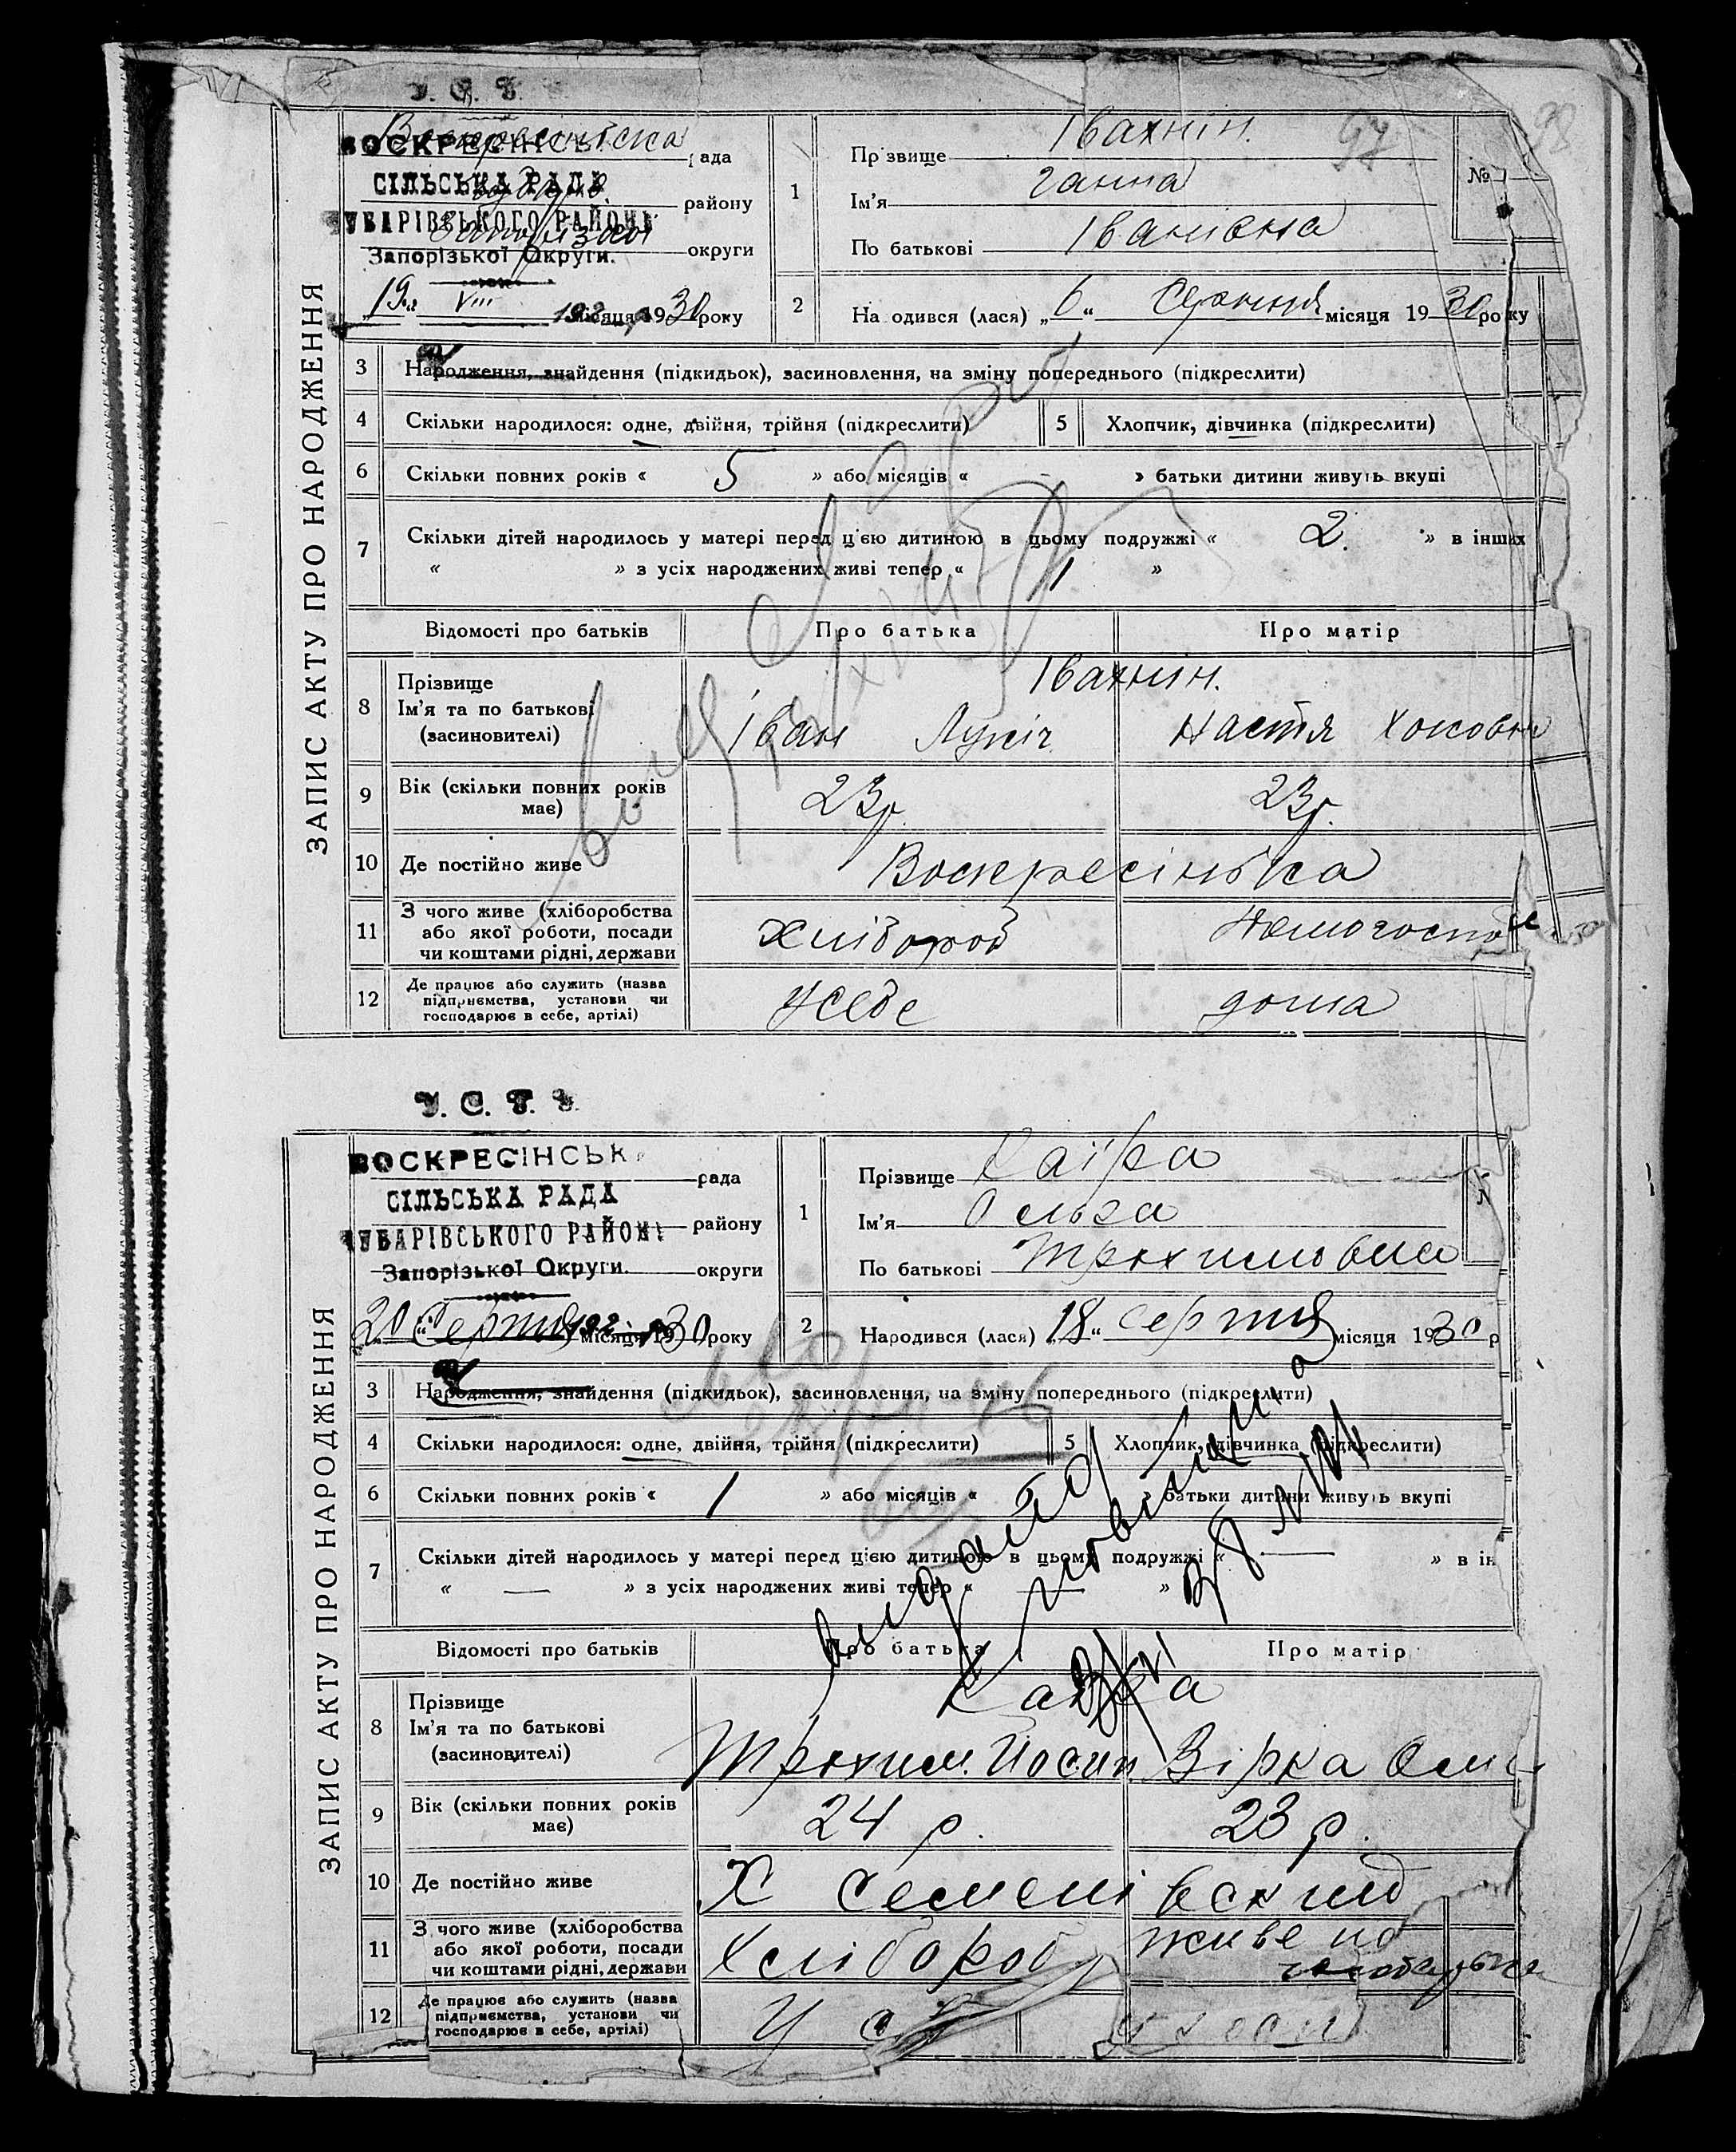 У. С. Р. Р.
Воскресінська
ВОСКРЕСІНСЬКА
рада
СІЛЬСЬКА РАДА
району
ЧУБАРІВСЬКОГО РАЙОНУ
Запорізької Округи.
округи
19 VIII місяця 1930 року
1
Прізвище Івахнін. 97 98
Ім'я Ганна
По батькові Іванівна
№
2
Народився (лася) „6“ Серпня місяця 1930 року
ЗАПИС АКТУ ПРО НАРОДЖЕННЯ
3 Народження, знайдення (підкидьок), засиновлення, на зміну попереднього (підкреслити)
4 Скільки народилося: одне, двійня, трійня (підкреслити)
5 Хлопчик, дівчинка (підкреслити)
6 Скільки повних років « 5 » або місяців « » батьки дитини живуть вкупі
7 Скільки дітей народилось у матері перед цією дитиною в цьому подружжі « 2. » в інших
« » з усіх народжених живі тепер « 1 »
Відомості про батьків Про батька Про матір
8 Прізвище
Ім'я та по батькові
(засиновителі)
Івахнін.
Іван Лукіч Настя
9 Вік (скільки повних років
має)
23р. 23р.
10 Де постійно живе Воскресінська
11 З чого живе (хліборобства
або якої роботи, посади
чи коштами рідні, держави
Хлібороб
12 Де працює або служить (назва
підприємства, установи чи
господарює в себе, артілі)
У себе дома
У. С. Р. Р.
ВОСКРЕСІНСЬКА
рада
СІЛЬСЬКА РАДА
району
ЧУБАРІВСЬКОГО РАЙОНУ
Запорізької Округи.
округи
20 Серпня місяця 1930 року
1
Прізвище Каіра
Ім'я Ольга
По батькові Трохимовна
2
Народився (лася) 18“ серпня місяця 1930 р
ЗАПИС АКТУ ПРО НАРОДЖЕННЯ
3 Народження, знайдення (підкидьок), засиновлення, на зміну попереднього (підкреслити)
4 Скільки народилося: одне, двійня, трійня (підкреслити)
5 Хлопчик, дівчинка (підкреслити)
6 Скільки повних років « 1 » або місяців « » батьки дитини живуть вкупі
7 Скільки дітей народилось у матері перед цією дитиною в цьому подружжі « — » в ін
« — » з усіх народжених живі тепер « — »
Відомості про батьків Про батька Про матір
8 Прізвище
Ім'я та по батькові
(засиновителі)
Каіра
Трохим. Йосип Вірка
9 Вік (скільки повних років
має)
24 р. 23 р.
10 Де постійно живе Х Семенівский
11 З чого живе (хліборобства
або якої роботи, посади
чи коштами рідні, держави
Хлібороб живе на
12 Де працює або служить (назва
підприємства, установи чи
господарює в себе, артілі)
У